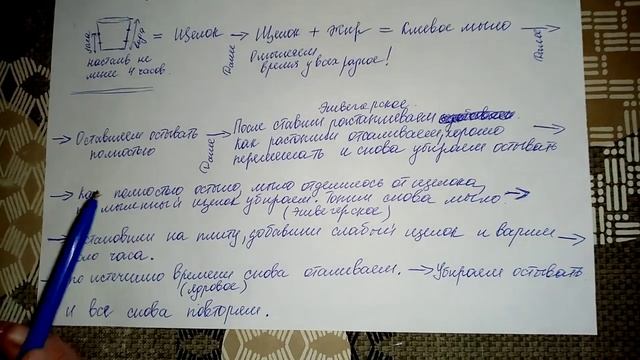 зола вода = Щелок → Щелок + Жир = Клеевое мыло →
настаив. не менее 4 часов.
Далее
Омыляем, время у всех разное!
Далее
Эшвегерское
→ Оставляем остывать → После ставим расстапливаем
полностью Далее как растопили отсаливаем, хорошо →
перемешать и снова убираем остывать
→ Как полностью остыло, мыло отделилось от щелока,
мыльный щелок убираем. Топим снова мыло. →
(Эшвегерское)
→ становили на плиту, добавили слабый щелок и варим →
часа.
по истечению времени снова оталиваем. → Убираем остывать
(ядровое)
и все снова повторяем.